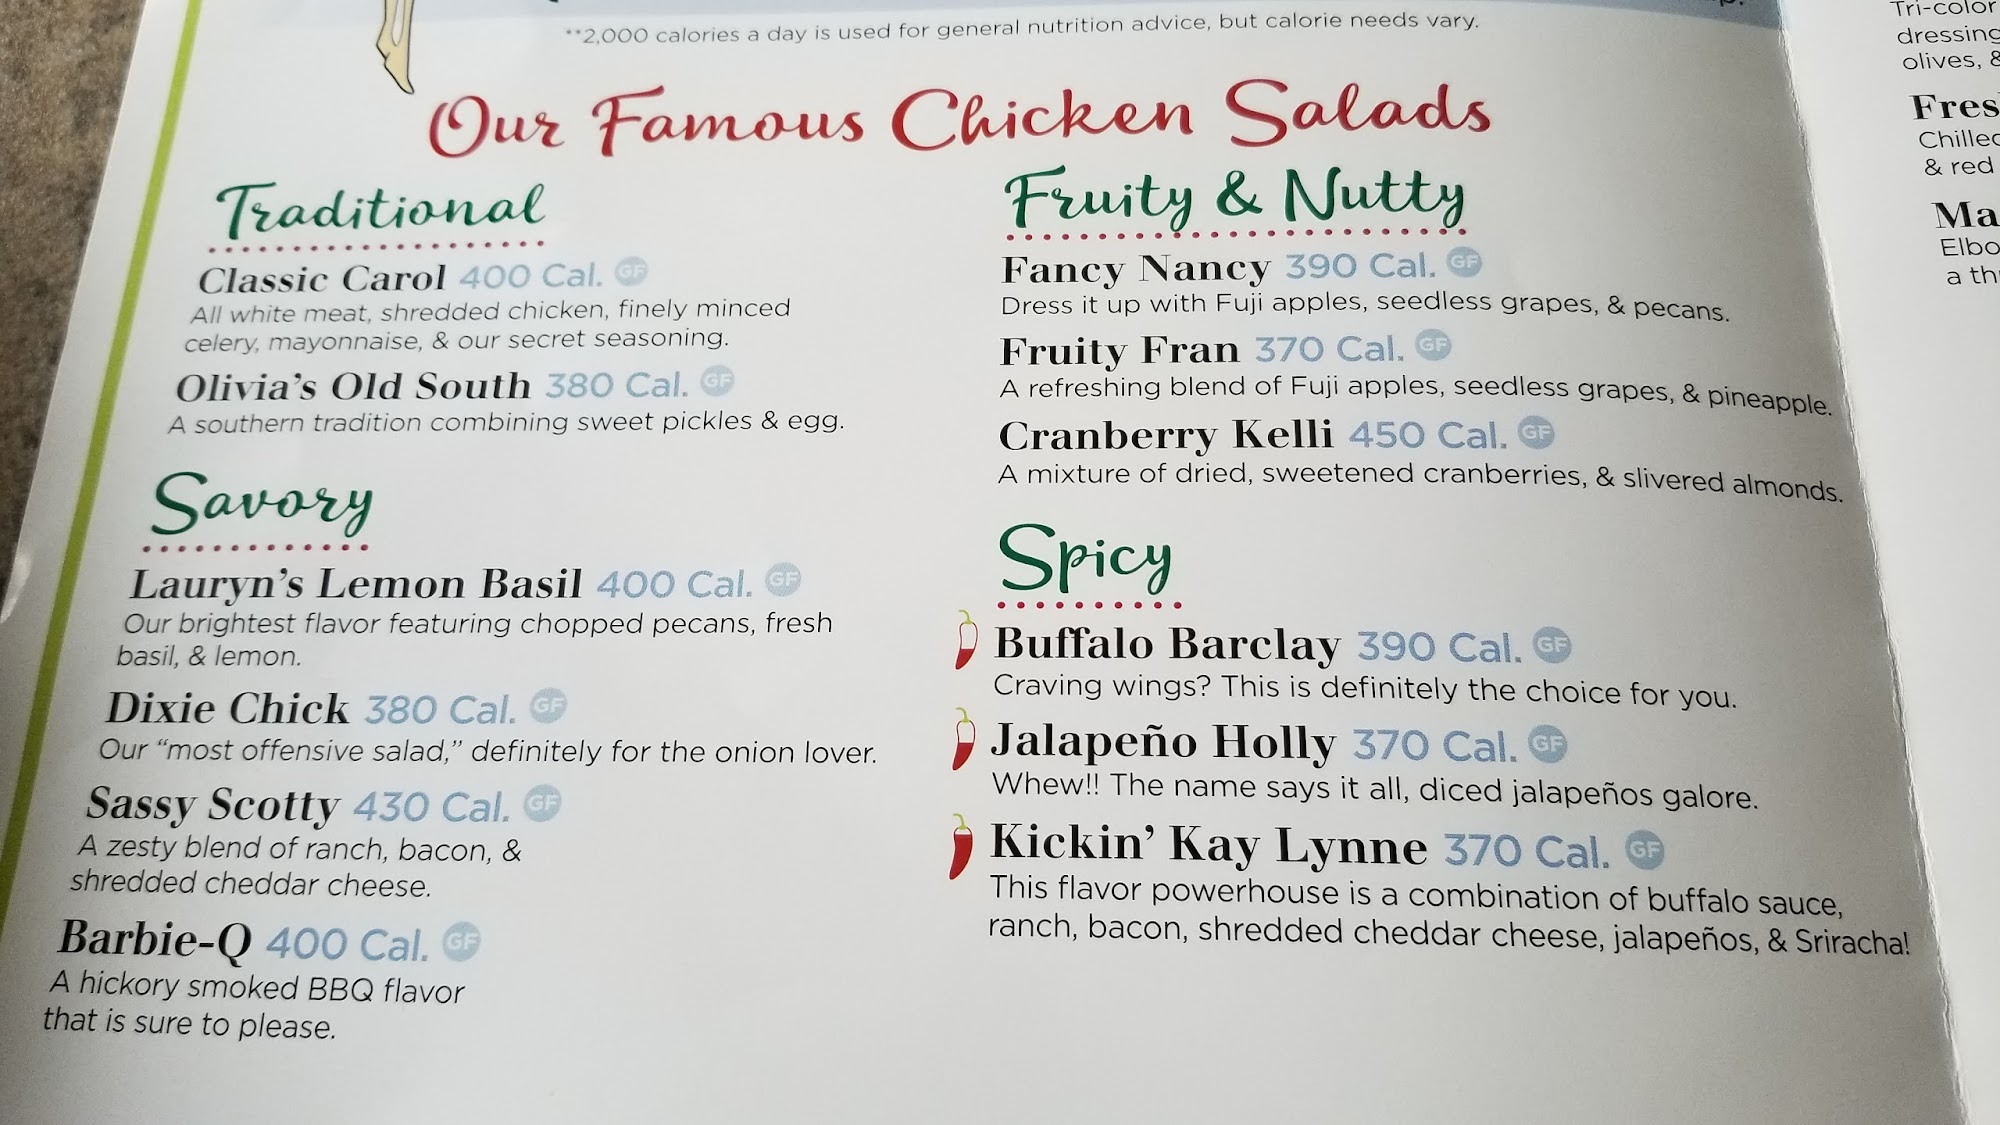 **2,000 calories a day is used for general nutrition advice, but calorie needs vary.
Our Famous Chicken Salads
Traditional
Classic Carol 400 Cal. GF
All white meat, shredded chicken, finely minced
celery, mayonnaise, & our secret seasoning.
Olivia's Old South 380 Cal. GF
A southern tradition combining sweet pickles & egg.
Savory
Lauryn's Lemon Basil 400 Cal. GF
Our brightest flavor featuring chopped pecans, fresh
basil, & lemon.
Dixie Chick 380 Cal. GF
Our "most offensive salad," definitely for the onion lover.
Sassy Scotty 430 Cal. GF
A zesty blend of ranch, bacon, &
shredded cheddar cheese.
Barbie-Q 400 Cal. GF
A hickory smoked BBQ flavor
that is sure to please.
Fruity & Nutty
Fancy Nancy 390 Cal. GF
Dress it up with Fuji apples, seedless grapes, & pecans.
Fruity Fran 370 Cal. GF
A refreshing blend of Fuji apples, seedless grapes, & pineapple.
Cranberry Kelli 450 Cal. GF
A mixture of dried, sweetened cranberries, & slivered almonds.
Spicy
Buffalo Barclay 390 Cal. GF
Craving wings? This is definitely the choice for you.
Jalapeño Holly 370 Cal. GF
Whew!! The name says it all, diced jalapeños galore.
Kickin' Kay Lynne 370 Cal. GF
This flavor powerhouse is a combination of buffalo sauce,
ranch, bacon, shredded cheddar cheese, jalapeños, & Sriracha!
Tri-color
dressing
olives, &
Fres
Chilled
& red
Ma
Elbo
a th